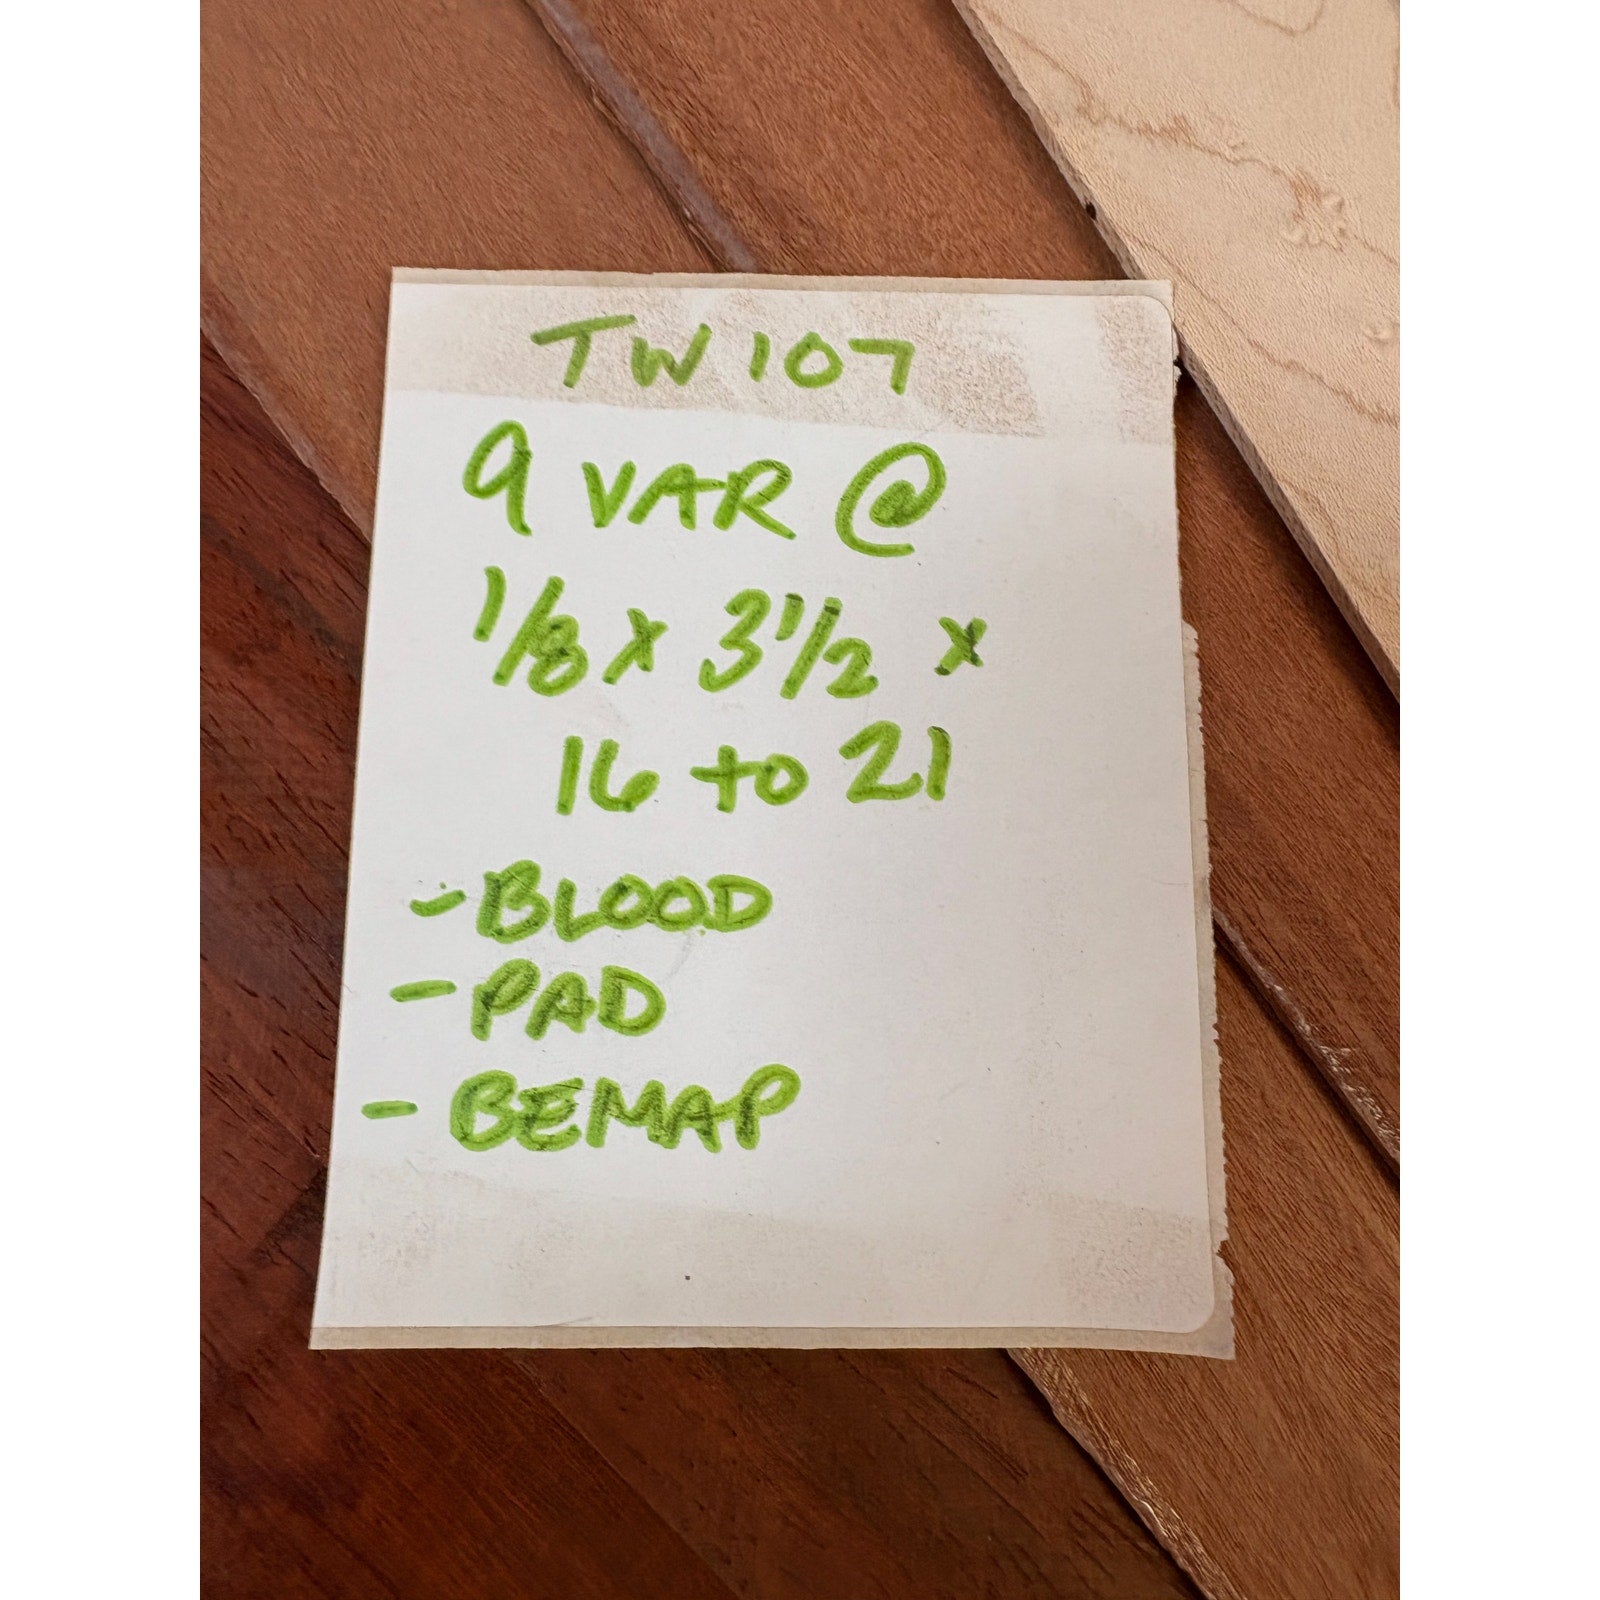 TW 107
9 VAR @
1/8 x 3 1/2 x
16 to 21
- BLOOD
- PAD
- BEMAP